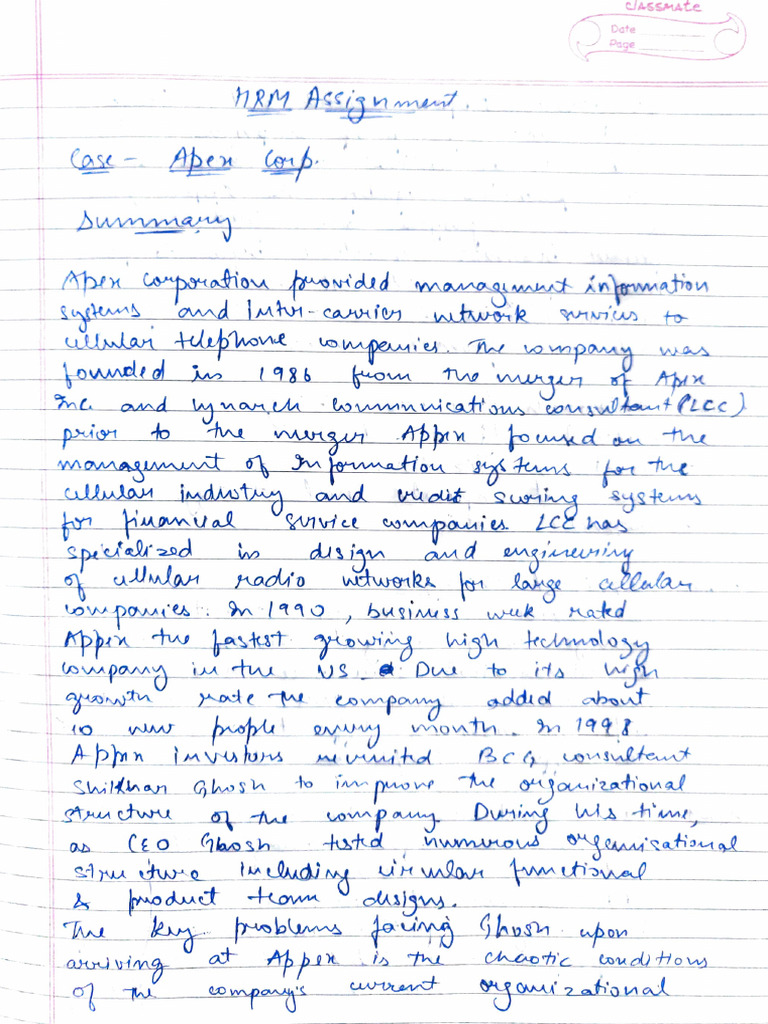 classmate
Date
Page
HRM Assignment.
Case - Apex Corp.
Summary
Apex corporation provided management information
systems and inter-carrier network services to
cellular telephone companies. The company was
founded in 1986 from the merger of Apex
Inc and Lynarch communications consultant (LCC)
prior to the merger Appex focused on the
management of Information systems for the
cellular industry and credit scoring systems
for financial service companies. LCC has
specialized in design and engineering
of cellular radio networks for large cellular
companies. In 1990, business week rated
Appex the fastest growing high technology
company in the US. Due to its high
growth rate the company added about
10 new people every month. In 1998
Appex investors recruited BCG consultant
Shikhar Ghosh to improve the organizational
structure of the company. During his time,
as CEO Ghosh tested numerous organisational
structure including circular functional
& product team designs.
The key problems facing Ghosh upon
arriving at Appex is the chaotic conditions
of the company's current organizational